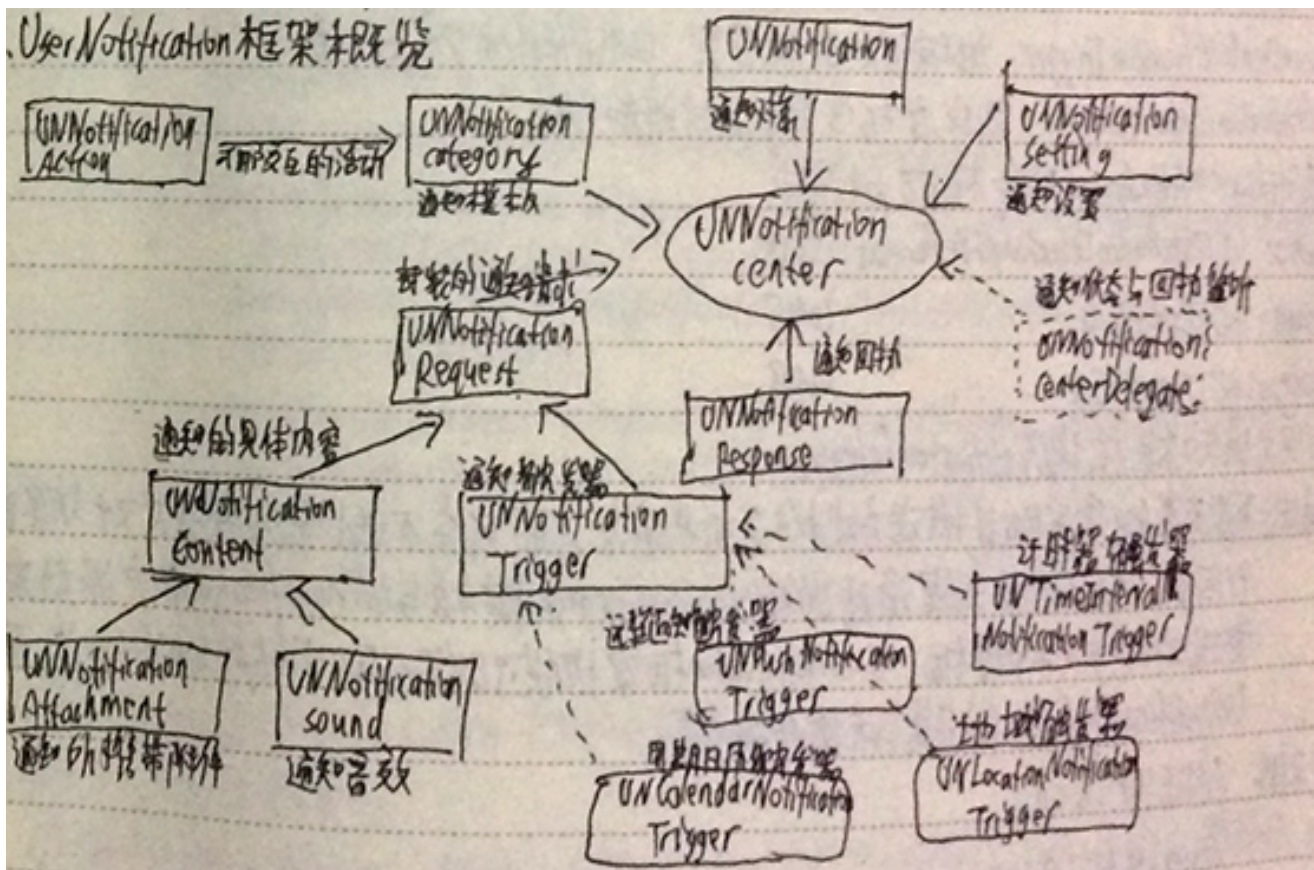 UserNotification框架概览
UNNotification
通知对象
UNNotification
Action
可交互的活动
UNNotification
category
通知模板
UNNotification
Setting
通知设置
UNNotification
center
封装的通知请求
UNNotification
Request
通知状态与回执监听
UNNotification
CenterDelegate
通知回执
UNNotification
Response
通知的具体内容
UNNotification
Content
通知触发器
UNNotification
Trigger
计时器触发器
UNTimeInterval
Notification Trigger
远程通知触发器
UNPushNotification
Trigger
UNNotification
Attachment
通知的携带附件
UNNotification
sound
通知音效
日期日历触发器
UNCalendarNotification
Trigger
地域触发器
UNLocationNotification
Trigger